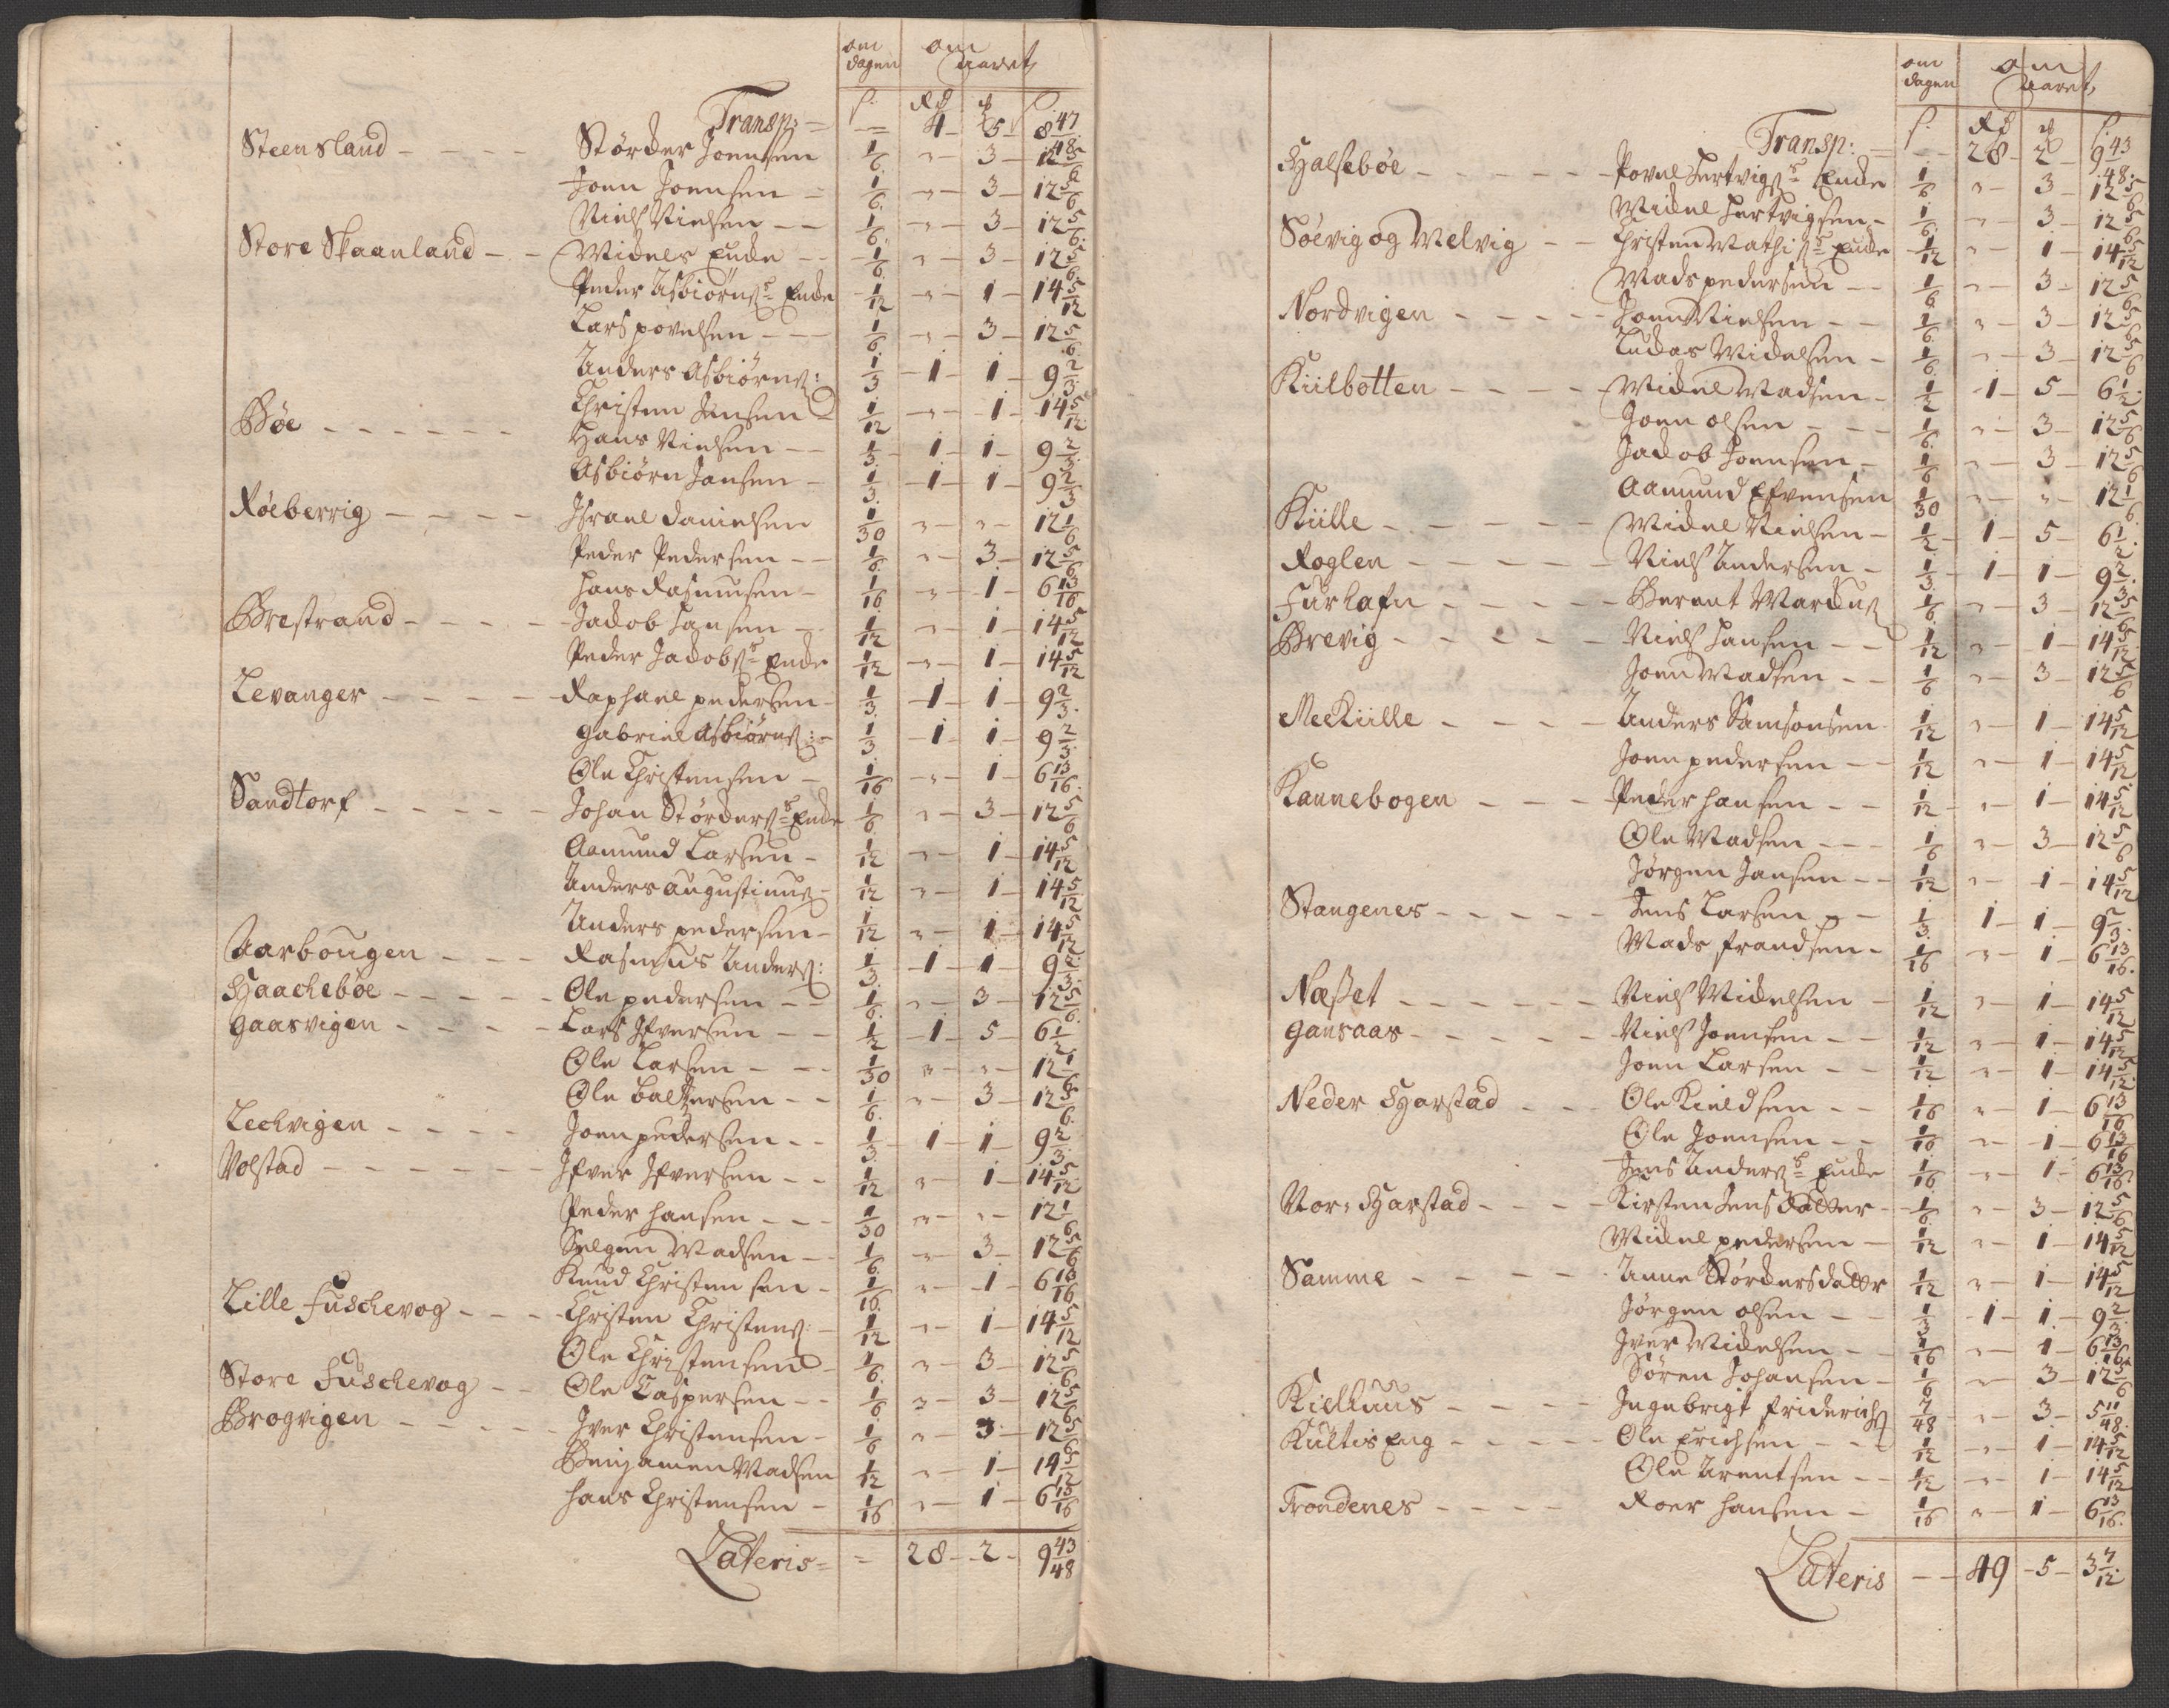 om dagen om aaret
ſ: Rd ꝑ ſ
Transp: = — 4 — 5 — 8 47/48
Steensland — Størcker Joensen 1/6 " 3 — 12 5/6
Joen Joensen — 1/6 " 3 — 12 5/6
Niels Nielsen — 1/6 " 3 — 12 5/6
Store Skaanland — Michels Encke — 1/6 " 3 — 12 5/6
Peder Asbiørnsens Encke 1/12 " 1 — 14 5/12
Lars povelsen — 1/6 " 3 — 12 5/6
Anders Asbiørns: 1/3 — 1 — 1 — 9 2/3
Christen Jensen 1/12 " 1 — 14 5/12
Bøe — Hans Nielsen — 1/3 — 1 — 1 — 9 2/3
Asbiørn Jansen — 1/3 — 1 — 1 — 9 2/3
Røeberrig — Jsrael Danielsen 1/30 " " 12 1/6
Peder Pedersen — 1/6 " 3 — 12 5/6
Hans Rasmusen — 1/16 " 1 — 6 13/16
Brestrand — Jacob Hansen — 1/12 " 1 — 14 5/12
Peder Jacobs: Encke 1/12 " 1 — 14 5/12
Levanger — Raphael pedersen 1/3 — 1 — 1 — 9 2/3
Gabriel Asbiørns: — 1/3 — 1 — 1 — 9 2/3
Ole Christensen — 1/16 " 1 — 6 13/16
Sandtorf — Johan Størckers: Encke 1/6 " 3 — 12 5/6
Aamund Larsen — 1/12 " 1 — 14 5/12
Anders Augustinus — 1/12 " 1 — 14 5/12
Anders pedersen — 1/12 " 1 — 14 5/12
Aarbougen — Rasmus Anders: 1/3 — 1 — 1 — 9 2/3
Haachebøe — Ole pedersen — 1/6 " 3 — 12 5/6
Gaasvigen — Lars Jfversen — 1/2 — 1 — 5 — 6 1/2
Ole Larsen — 1/30 " " 12 1/6
Ole Baltzersen — 1/6 " 3 — 12 5/6
Lechvigen — Joen pedersen — 1/3 — 1 — 1 — 9 2/3
Volstad — Jfver Jfversen — 1/12 " 1 — 14 5/12
Peder Hansen — 1/30 " " 12 1/6
Helgen Madsen — 1/6 " 3 — 12 5/6
Knud Christensen — 1/16 " 1 — 6 13/16
Lille Fuschevog — Christen Christens: — 1/12 " 1 — 14 5/12
Ole Christensen — 1/6 " 3 — 12 5/6
Store Fuschevog — Ole Caspersen — 1/6 " 3 — 12 5/6
Brogvigen — Jver Christensen — 1/6 " 3 — 12 5/6
Benjamen Madsen 1/12 " 1 — 14 5/12
Hans Christensen — 1/16 " 1 — 6 13/16
Lateris = = 28 — 2 — 9 43/48
om dagen om aaret
ſ: Rd ꝑ ſ:
Transp: = — 28 — 2 — 9 43/48
Halsebøe — Povel Hertvigs: Encke 1/6 " 3 — 12 5/6
Michel Hertvigsen — 1/6 " 3 — 12 5/6
Søevig og Melvig — Christen Mathis: Encke 1/12 " 1 — 14 5/12
Mads pedersen — 1/6 " 3 — 12 5/6
Nordvigen — Joen Nielsen — 1/6 " 3 — 12 5/6
Lucas Michelsen — 1/6 " 3 — 12 5/6
Kiilbotten — Michel Madsen — 1/2 — 1 — 5 — 6 1/2
Joen olsen — 1/6 " 3 — 12 5/6
Jacob Joensen — 1/6 " 3 — 12 5/6
Aamund Efvensen 1/30 " " 12 1/6
Kiille — Michel Nielsen — 1/2 — 1 — 5 — 6 1/2
Roglen — Niels Andersen — 1/3 — 1 — 1 — 9 2/3
Furlafn — Berent Marcus 1/6 " 3 — 12 5/6
Brevig — Niels Hansen — 1/12 " 1 — 14 5/12
Joen Madsen — 1/6 " 3 — 12 5/6
Mekiille — Anders Samsonsen 1/12 " 1 — 14 5/12
Joen pedersen — 1/12 " 1 — 14 5/12
Kannebogen — Peder Hansen — 1/12 " 1 — 14 5/12
Ole Madsen — 1/6 " 3 — 12 5/6
Jørgen Jansen — 1/12 " 1 — 14 5/12
Stangenes — Jens Larsen — 1/3 1 — 1 — 9 2/3
Mads frandsen — 1/16 " 1 — 6 13/16
Næßet — Niels Michelsen — 1/12 " 1 — 14 5/12
Gansaas — Niels Joensen — 1/12 " 1 — 14 5/12
Joen Larsen — 1/12 " 1 — 14 5/12
Neder Harstad — Ole Kieldsen — 1/16 " 1 — 6 13/16
Ole Joensen — 1/16 " 1 — 6 13/16
Jens Anders: Encke 1/16 " 1 — 6 13/16
Nor: Harstad — Kirsten Jens datter — 1/6 " 3 — 12 5/6
Michel pedersen — 1/12 " 1 — 14 5/12
Samme — Anne Størckersdatter 1/12 " 1 — 14 5/12
Jørgen olsen — 1/3 — 1 — 1 — 9 2/3
Jver Michelsen — 1/16 " 1 — 6 13/16
Søren Johansen — 1/6 " 3 — 12 5/6
Kielhuus — Jngebrigt friderichs 7/48 " 3 — 5 11/48
Kultis Eng — Ole Erichsen — 1/12 " 1 — 14 5/12
Ole Arentsen — 1/12 " 1 — 14 5/12
Trondenes — Roer Hansen — 1/16 " 1 — 6 13/16
Lateris — 49 — 5 — 3 7/12